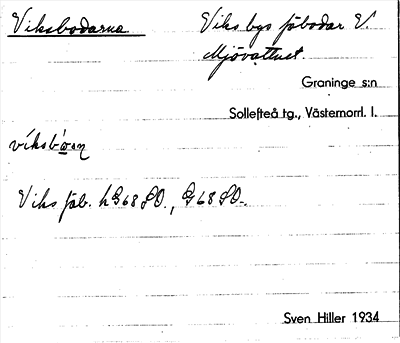 Viksbodarna
Viks bys fäbodar V.
Mjövattnet.
Graninge s:n
Sollefteå tg., Västernorrl. l.
víksbòan
Viks fäb. h G68 SO., G68 SO.
Sven Hiller 1934